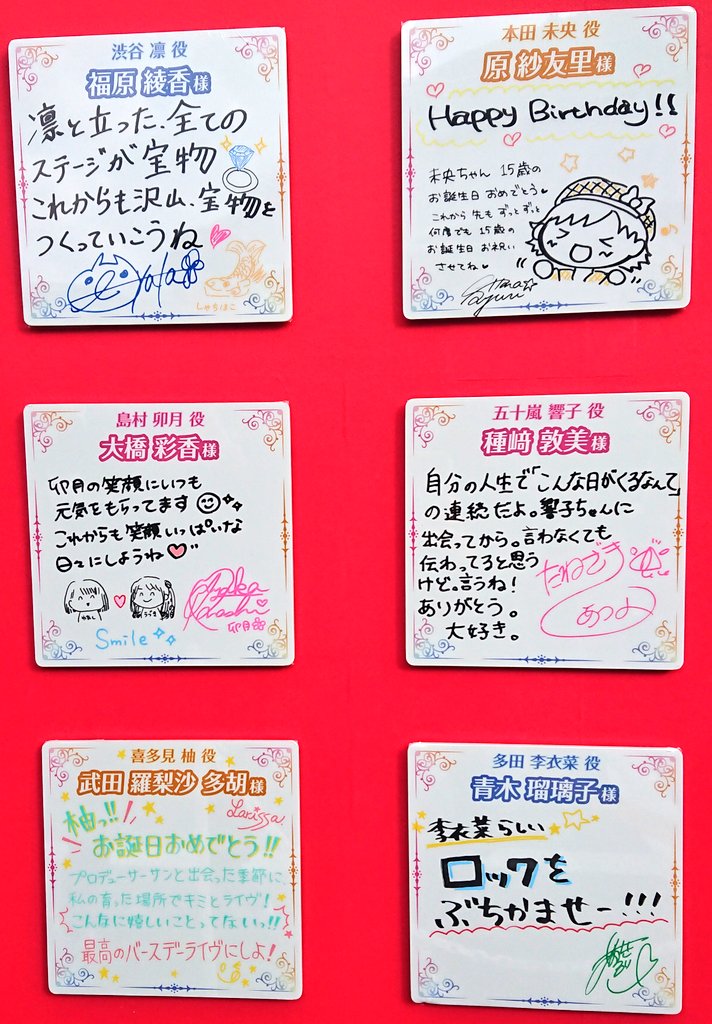 渋谷 凛 役
福原 綾香様
凛と立った、全ての
ステージが宝物
これからも沢山、宝物を
つくっていこうね
しゃちほこ
本田 未央 役
原 紗友里様
Happy Birthday!!
未央ちゃん 15歳の
お誕生日 おめでとう
これから 先も ずっとずっと
何度でも 15歳の
お誕生日 お祝い
させてね
島村 卯月 役
大橋 彩香様
卯月の笑顔にいつも
元気をもらってます
これからも笑顔いっぱいな
日々にしようね
Smile
卯月
五十嵐 響子 役
種﨑 敦美様
自分の人生で「こんな日がくるなんて」
の連続だよ。響子ちゃんに
出会ってから。言わなくても
伝わってると思う
けど。言うね!
ありがとう。
大好き。
たねざき
あつみ
喜多見 柚 役
武田 羅梨沙 多胡様
柚っ!!
Larissa.
お誕日おめでとう!!
プロデューサーサンと出会った季節に、
私の育った場所でキミとライヴ!
こんなに嬉しいことってないっ!!
最高のバースデーライヴにしよ!
多田 李衣菜 役
青木 瑠璃子様
李衣菜らしい
ロックを
ぶちかませー!!!